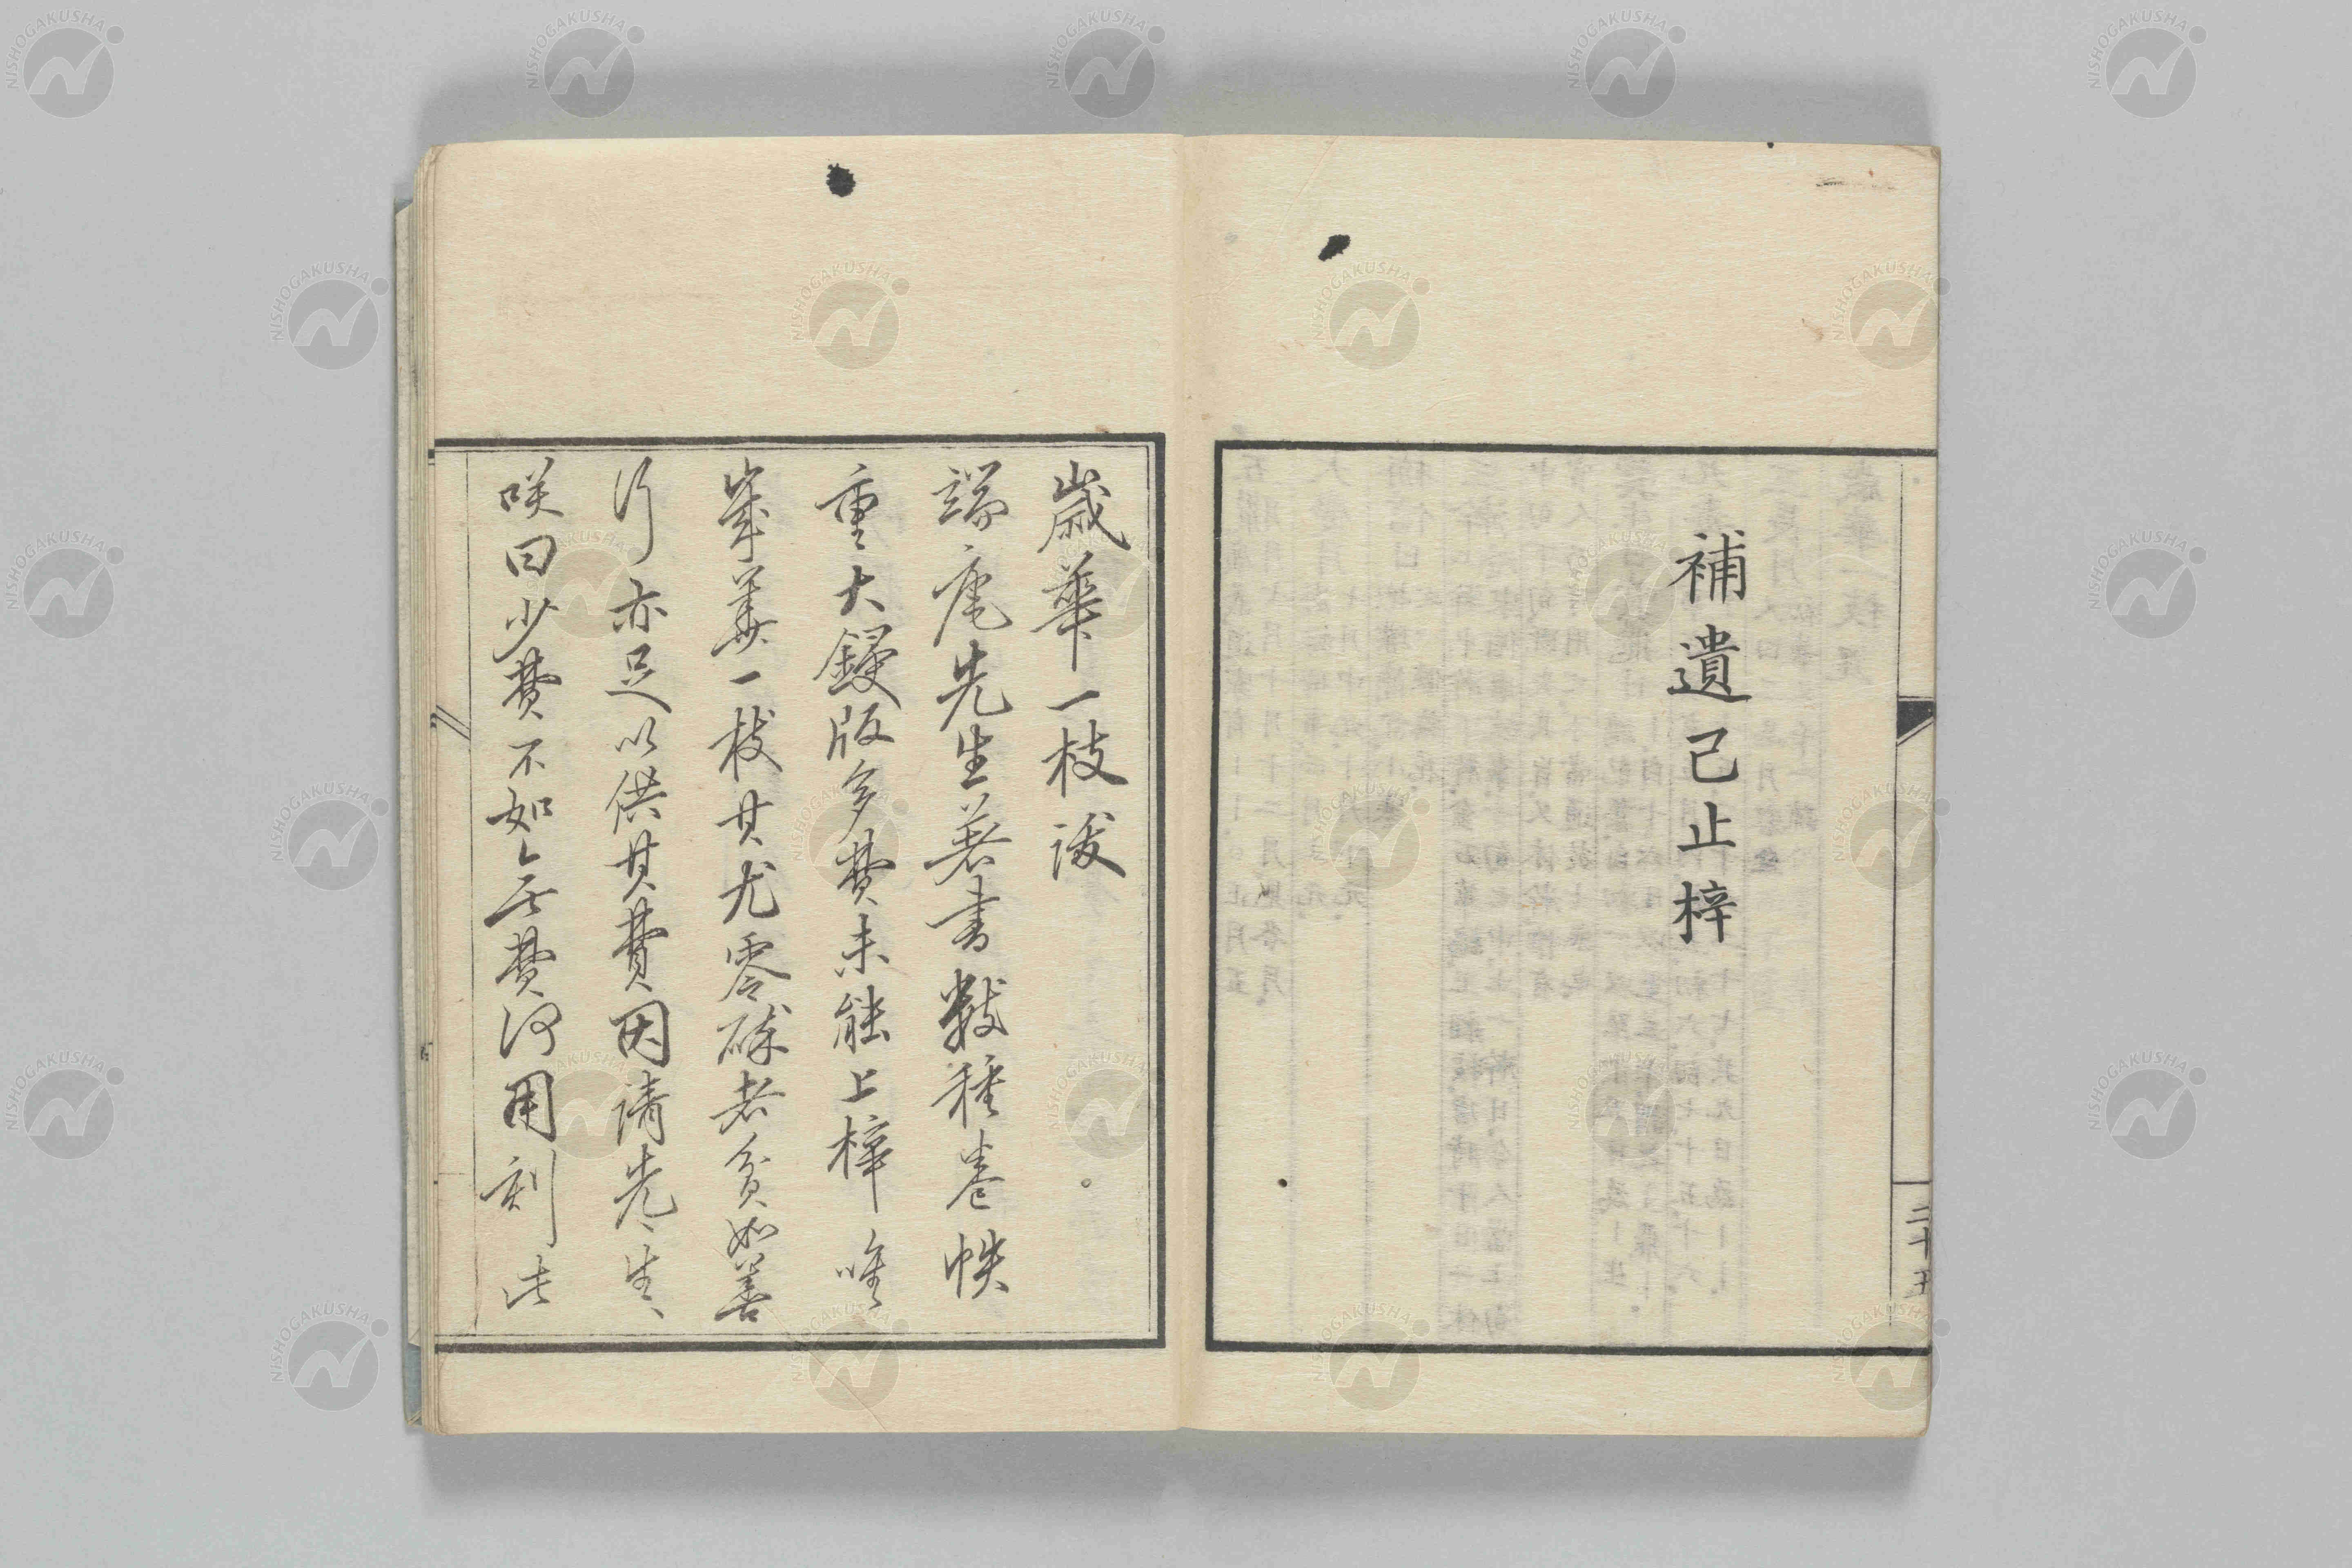 補遺已止梓
二十五
歳華一枝跋
端庵先生著書數種卷帙
重大鋟版多費未能上梓唯
歳華一枝其尤零砕者貧如善
行亦足以供其費因請先生先生
咲曰少費不如無費何用刻此
NISHOGAKUSHA